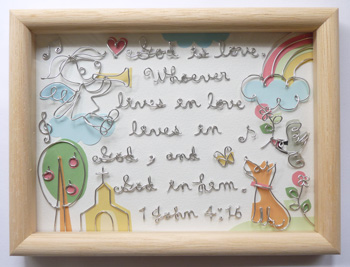 God is love.
Whoever
lives in love
lives in
God, and
God in him.
1 John 4:16